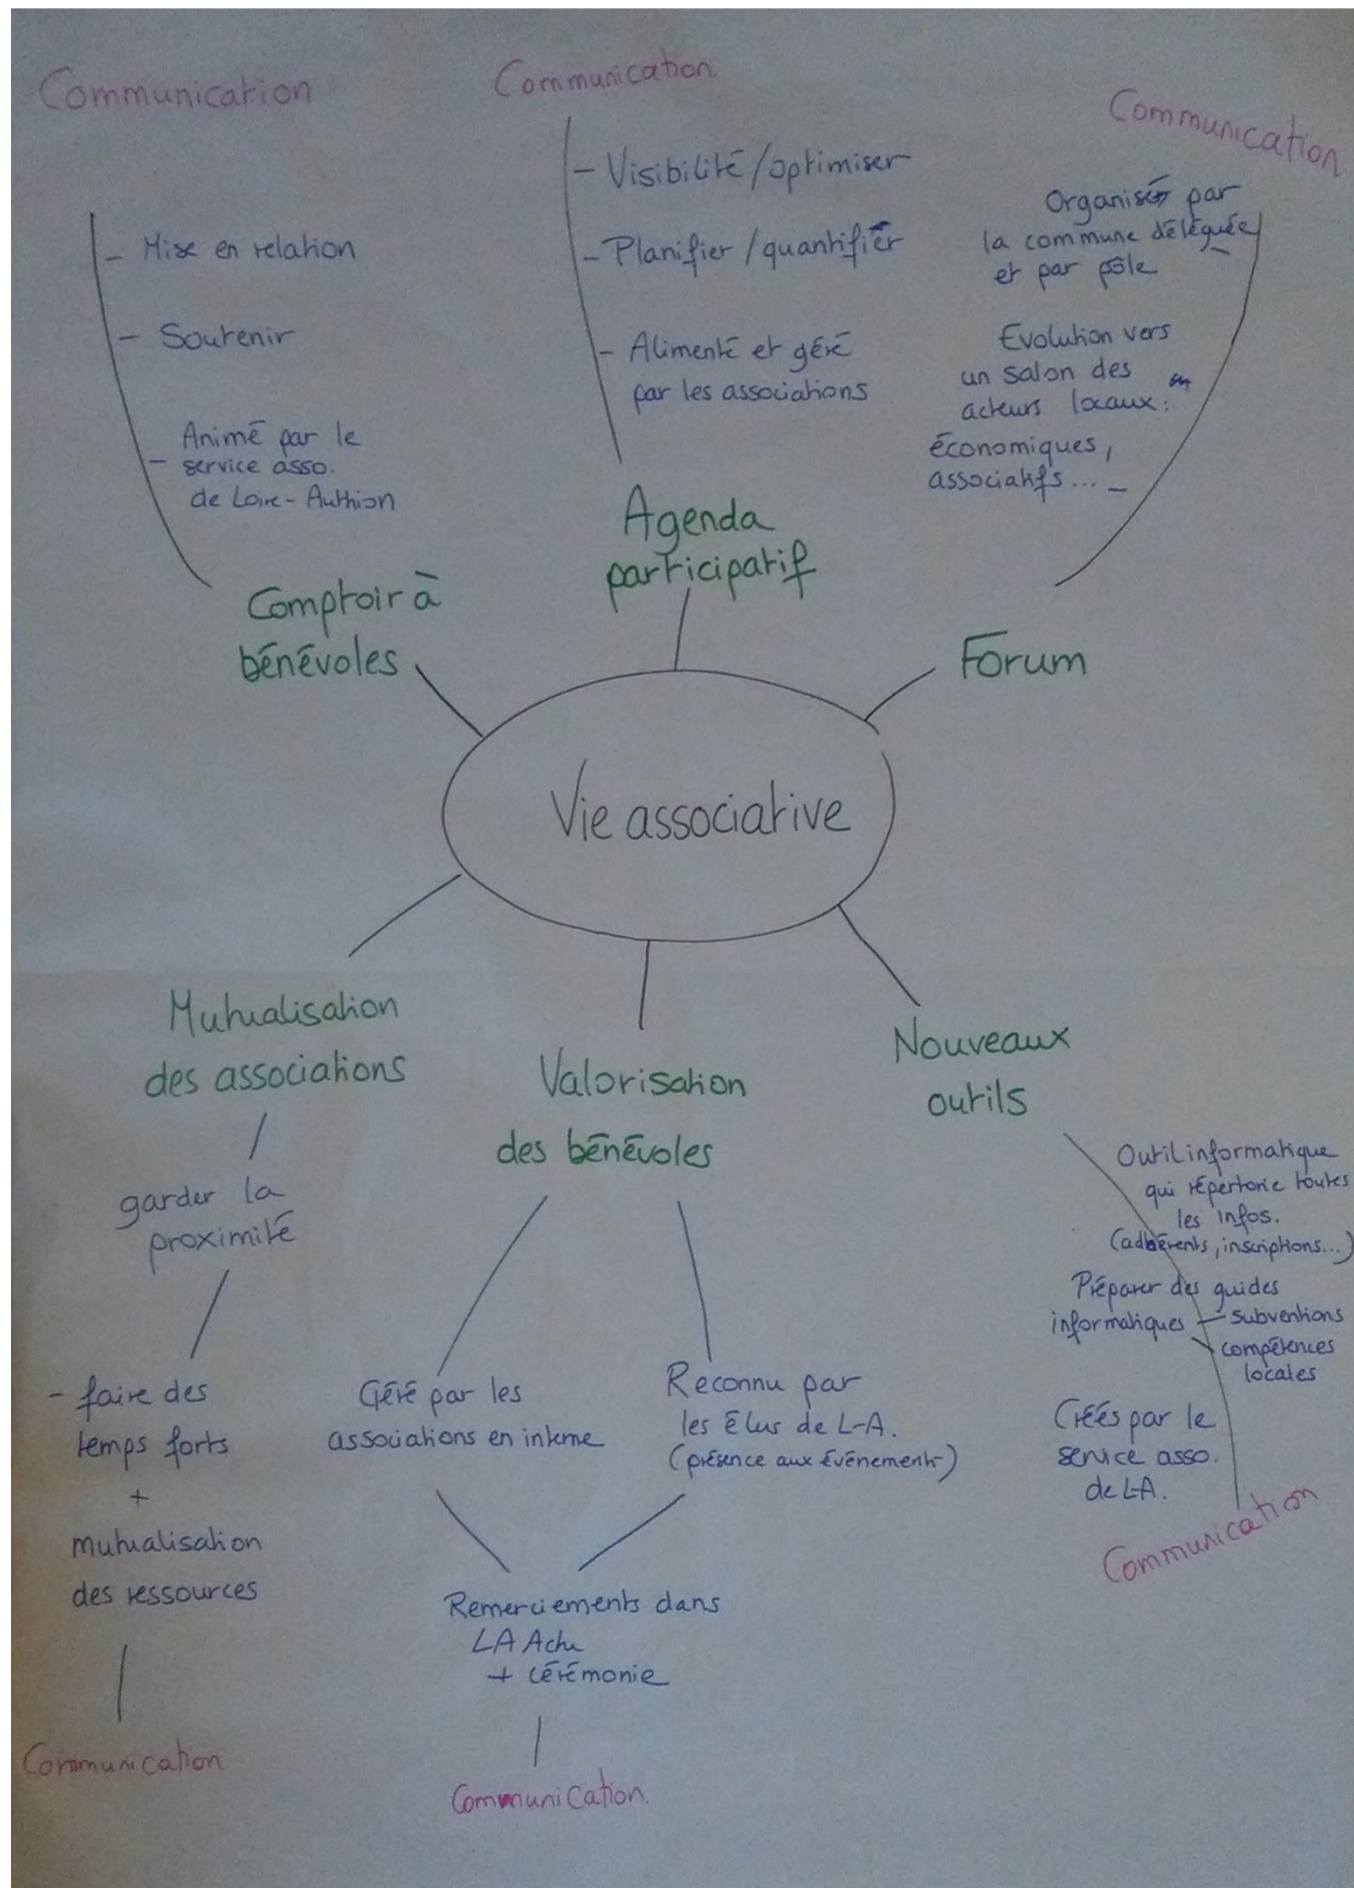 Communication
- Mise en relation
- Soutenir
- Animé par le
service asso.
de Loire-Authion
Comptoir à
bénévoles
Communication
- Visibilité/optimiser
- Planifier/quantifier
- Alimenté et géré
par les associations
Agenda
participatif
Communication
Organisés par
la commune déléguée
et par pôle
Evolution vers
un salon des
acteurs locaux:
économiques,
associatifs...
Forum
Vie associative
Mutualisation
des associations
garder la
proximité
- faire des
temps forts
+
mutualisation
des ressources
Communication
Valorisation
des bénévoles
Géré par les
associations en interne
Reconnu par
les élus de L-A.
(présence aux événements)
Remerciements dans
LA Actu
+ cérémonie
Communication.
Nouveaux
outils
Outil informatique
qui répertorie toutes
les infos.
(adhérents, inscriptions...)
Préparer des guides
informatiques
- subventions
- compétences
locales
Créés par le
service asso.
de L-A.
Communication